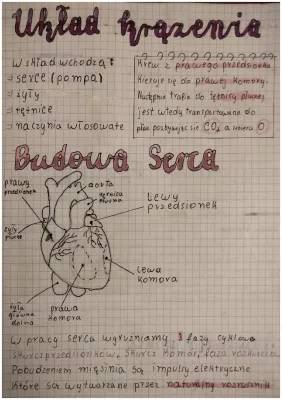 Układ krążenia
W skład wchodzą:
- serce (pompa)
- żyły
- tętnice
- naczynia włosowate
Krew z prawego przedsionka
Kieruje się do prawej komory.
Następnie trafia do tętnicy płucnej
jest wtedy transportowana do
płuc pozbywając się CO₂ a wraca O₂
Budowa Serca
prawy
przedsionek
aorta
tętnica
płucna
Lewy
przedsionek
żyły
płucne
Lewa
komora
żyła
główna
dolna
prawa
komora
W pracy serca wyróżniamy 3 fazy cyklowe
skurcz przedsionków, skurcz komór, faza rozkurczu
Pobudzeniem mięśnia są impulsy elektryczne
które są wytwarzane przez naturalny rozrusznik